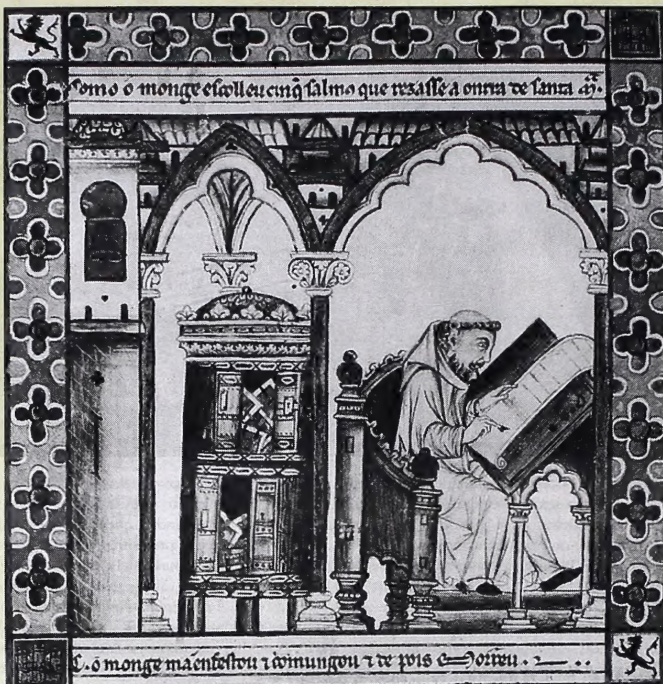 Como o monge escolleu cinq̃ salmo que rezasse a onrra de santa M̃ª.
C. o monge maenfestou ⁊ comungou ⁊ de pois morreu.